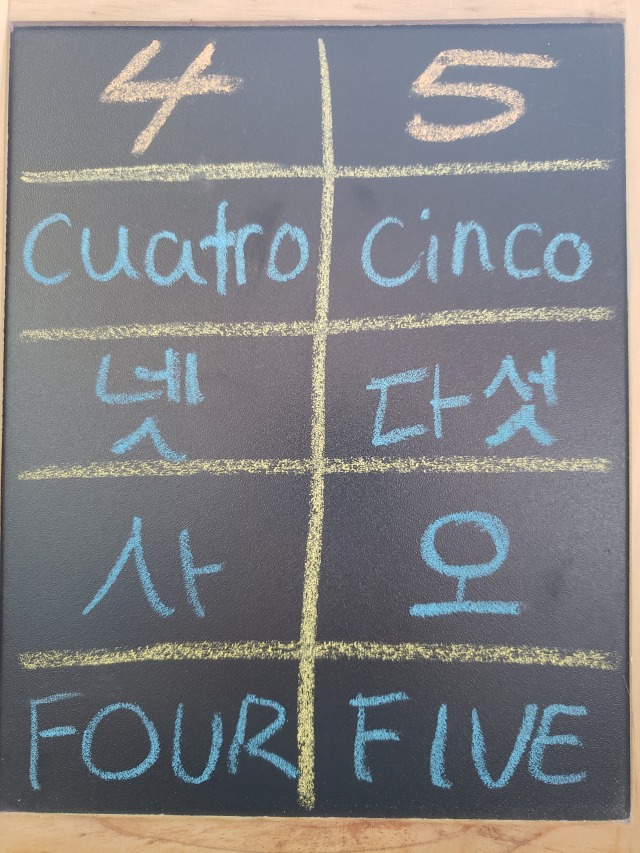 4 5
cuatro cinco
넷 다섯
사 오
FOUR FIVE